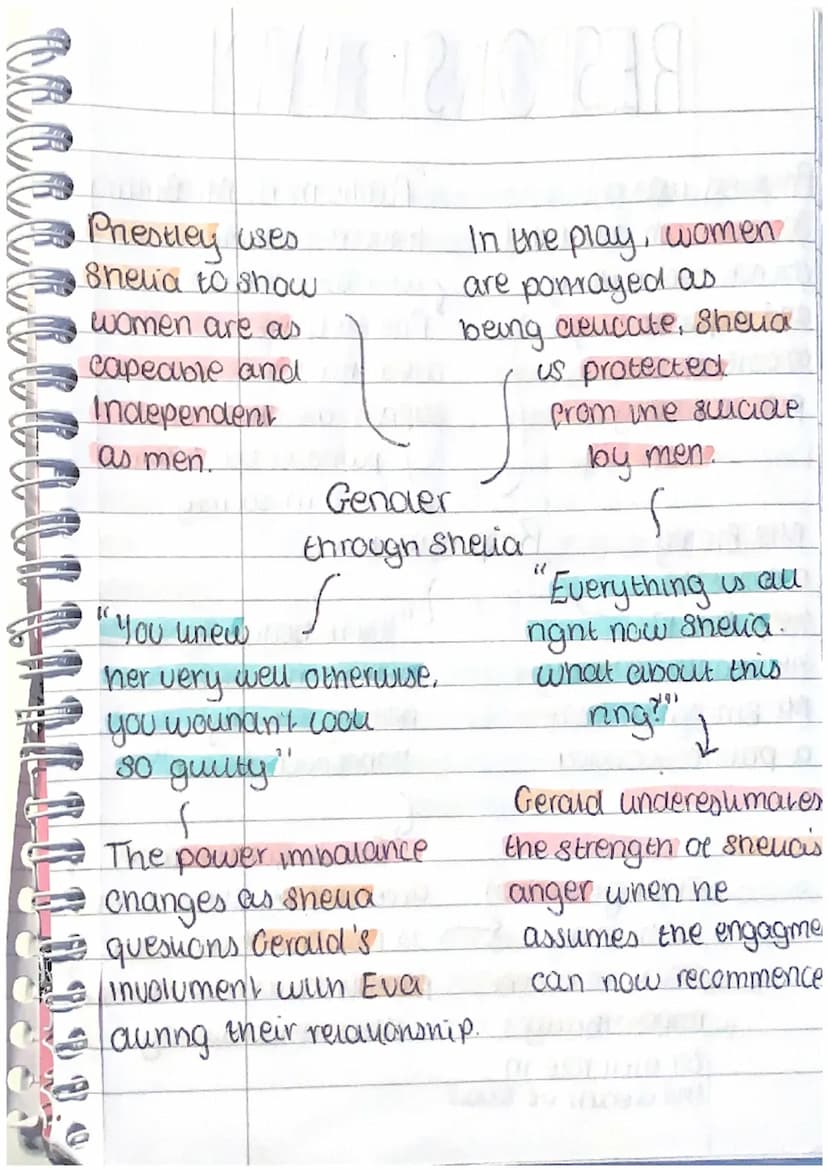 Priestley uses
Shelia to show
women are as
capeable and
Independent
as men.
In the play, women
are portrayed as
being delicate. Shelia
is protected
from the suicide
by men.
Gender
through Shelia
"You knew
her very well otherwise,
you wouldn't look
so guilty"
The power imbalance
changes as Shelia
questions Gerald's
involument with Eva
during their relationship.
"Everything is all
right now Shelia.
what about this
ring?"
Gerald underestimates
the strength of Shelia's
anger when he
assumes the engagme
can now recommence